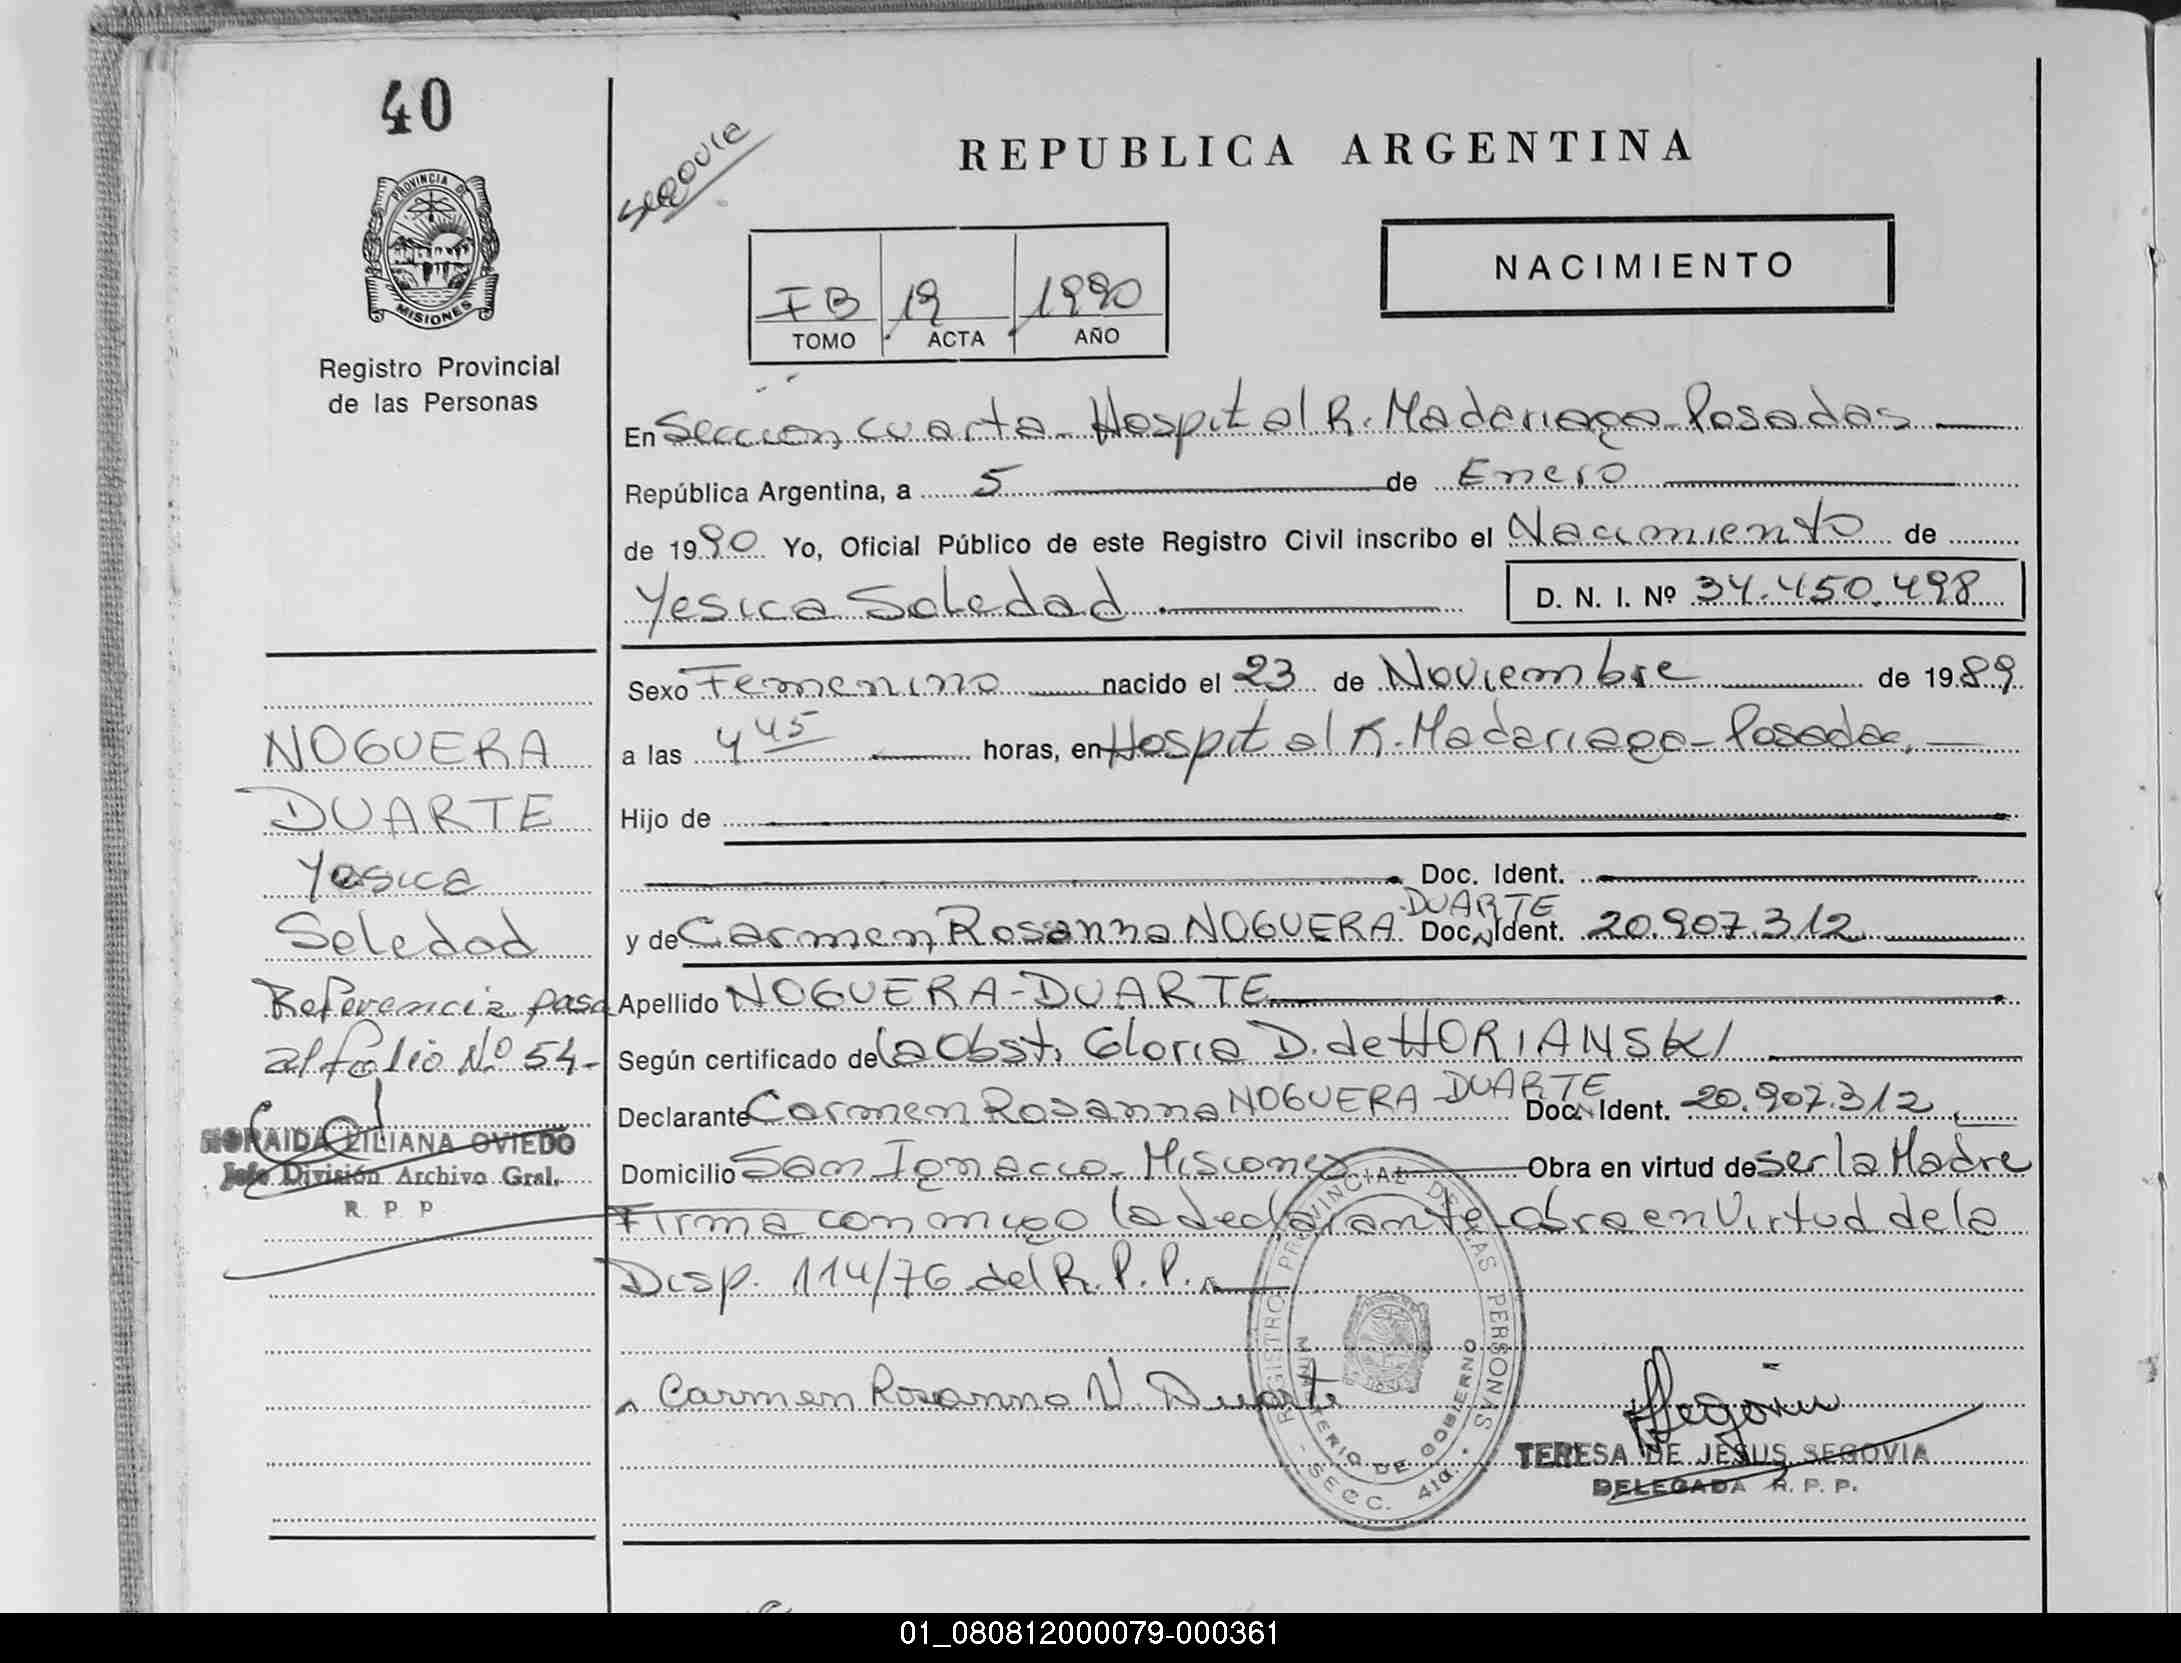 40
PROVINCIA DE
MISIONES
Registro Provincial
de las Personas
Segovia
REPUBLICA ARGENTINA
NACIMIENTO
IB 19 1990
TOMO ACTA AÑO
En Sección cuarta - Hospital R. Madariaga - Posadas
República Argentina, a 5 de Enero
de 1990 Yo, Oficial Público de este Registro Civil inscribo el Nacimiento de
Yesica Soledad. D. N. I. Nº 34.450.498
Sexo Femenino nacido el 23 de Noviembre de 1989
a las 4 45 horas, en Hospital R. Madariaga - Posadas.
Hijo de
Doc. Ident.
DUARTE
y de Carmen Rosanna NOGUERA Doc. Ident. 20.907.312
Apellido NOGUERA-DUARTE
Según certificado de la Obst. Gloria D. de HORIANSKI
Declarante Carmen Rosanna NOGUERA-DUARTE Doc. Ident. 20.907.312
Domicilio San Ignacio - Misiones Obra en virtud de ser la Madre
Firma conmigo la declarante - obra en Virtud de la
Disp. 114/76 del R.P.P.
Carmen Rosanna N. Duarte
Segovia
TERESA DE JESUS SEGOVIA
DELEGADA R. P. P.
REGISTRO PROVINCIAL DE LAS PERSONAS
MINISTERIO DE GOBIERNO
- SECC. 4ta. -
NOGUERA
DUARTE
Yesica
Soledad
Referencia pasa
al folio Nº 54-
ZILIANA OVIEDO
Jefe División Archivo Gral.
R P P
01_080812000079-000361